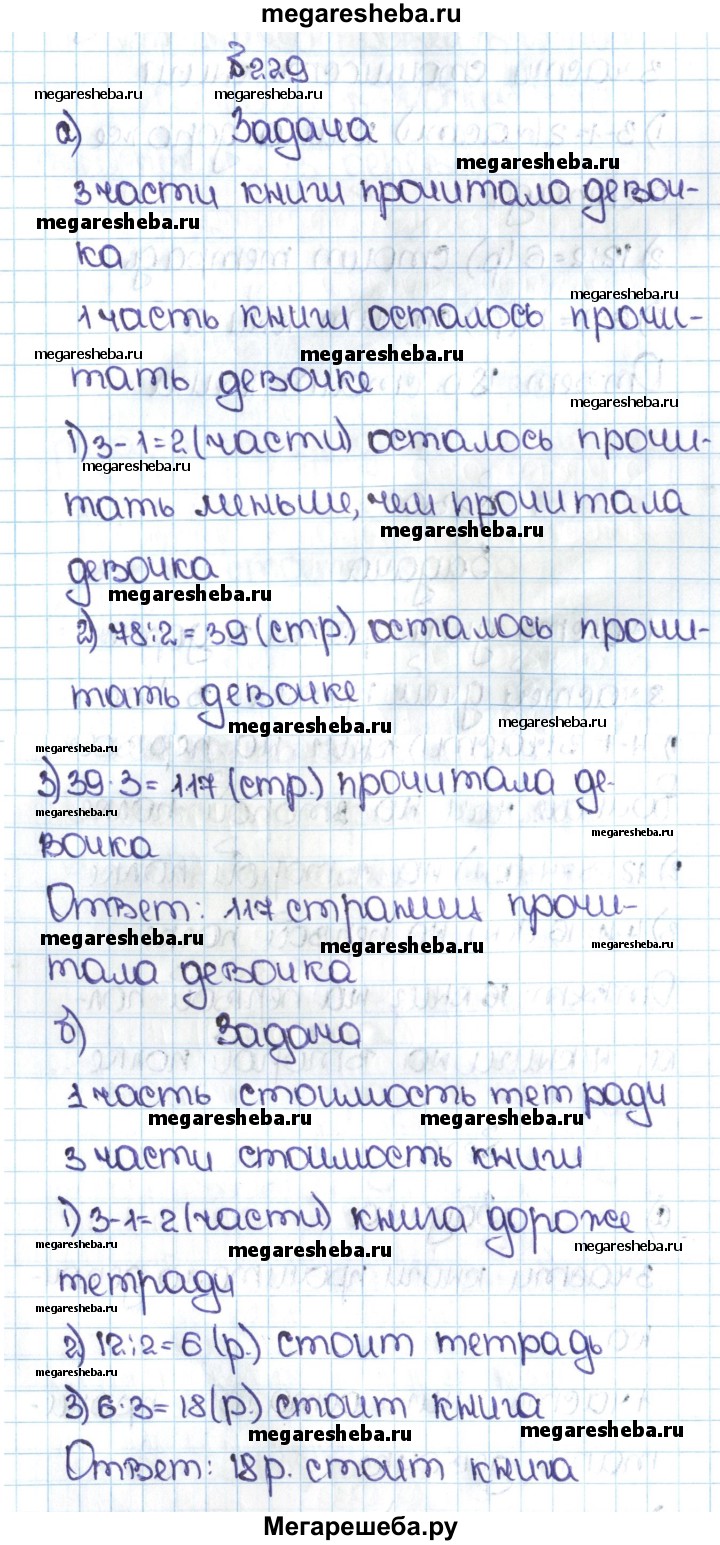 megaresheba.ru
№229
megaresheba.ru megaresheba.ru
а) Задача
megaresheba.ru
3 части книги прочитала девоч-
megaresheba.ru
ка
megaresheba.ru
1 часть книги осталось прочи-
megaresheba.ru megaresheba.ru
тать девочке
megaresheba.ru
1) 3-1=2 (части) осталось прочи-
megaresheba.ru
тать меньше, чем прочитала
megaresheba.ru
девочка
megaresheba.ru
2) 78:2=39 (стр.) осталось прочи-
тать девочке
megaresheba.ru megaresheba.ru
megaresheba.ru
3) 39·3=117 (стр.) прочитала де-
megaresheba.ru megaresheba.ru
вочка
Ответ: 117 страниц прочи-
megaresheba.ru megaresheba.ru megaresheba.ru
тала девочка
б) Задача
1 часть стоимость тетради
megaresheba.ru megaresheba.ru
3 части стоимость книги
1) 3-1=2 (части) книга дороже
megaresheba.ru megaresheba.ru megaresheba.ru
тетради
megaresheba.ru
2) 12:2=6 (р.) стоит тетрадь
megaresheba.ru
3) 6·3=18 (р.) стоит книга
megaresheba.ru megaresheba.ru
Ответ: 18 р. стоит книга
Мегарешеба.ру